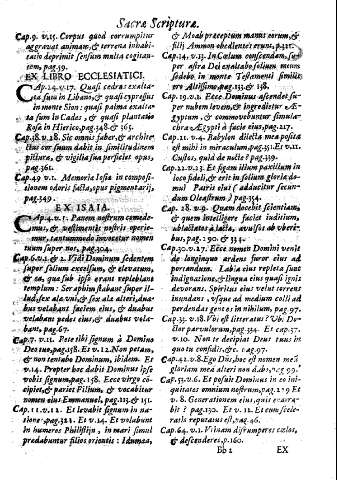 Sacræ Scripturæ.
Cap.9. v.15. Corpus quod corrumpitur
aggravat animam, & terrena inhabi-
tatio deprimit sensum multa cogitan-
tem, pag.39.
EX LIBRO ECCLESIASTICI.
CAp.24. v.17. Quasi cedrus exalta-
ta sum in Libano, & quasi cypressus
in monte Sion: quasi palma exalta-
ta sum in Cades, & quasi plantatio
Rosæ in Hierico, pag.348 & 365.
Cap.38. v.28. Sic omnis faber, & archite-
ctus cor suum dabit in similitudinem
picturæ, & vigilia sua perficiet opus,
pag.361.
Cap.49 v.1. Memoria Iosiæ in composi-
tionem odoris facta, opus pigmentarij,
pag.349.
EX ISAIA.
CAp.4. v.1. Panem nostrum comede-
mus, & vestimentis nostris operie-
mur, tantummodo invocetur nomen
tuum super nos, pag.304.
Cap.6. v.1. & 2. Vidi Dominum sedentem
super solium excelsum, & elevatum,
& ea, quæ sub ipso erant replebant
templum: Seraphim stabant super il-
lud, sex alæ uni, & sex alæ alteri, dua-
bus velabant faciem eius, & duabus
velabant pedes eius, & duabus vola-
bant, pag.67.
Cap.7. v.11. Pete tibi signum à Domino
Deo tuo, pag.158. Et v.12. Non petam,
& non tentabo Dominum, ibidem. Et
v.14. Propter hoc dabit Dominus ipse
vobis signum, pag.158. Ecce virgo cõ-
cipiet, & pariet Filium, & vocabitur
nomen eius Emmanuel, pag.113, & 151.
Cap.11. v.12. Et levabit signum in na-
tiones, pag.321. Et v.14. Et volabunt
in humeros Philistiim, in mari simul
prædabuntur filios orientis: Idumæa,
& Moab præceptum manus eorum, &
filij Ammon obedientes erunt, p.321.
Cap.14. v.13. In Cœlum conscendam, su-
per astra Dei exaltabo solium meum
sedebo in monte Testamenti similis
ero Altissimo, pag.153, & 158.
Cap.19. v.1. Ecce Dominus ascendet su-
per nubem levem, & ingredietur Æ-
gyptum, & commovebuntur simula-
chra Ægypti à facie eius, pag.217.
Cap.21. v.4. Babylon dilecta mea posita
est mihi in miraculum, pag.3. Et v.11.
Custos, quid de nocte? pag.339.
Cap.22. v.23. Et figam illum paxillum in
loco fideli, & erit in solium gloriæ do-
mui Patris eius (adducitur secun-
dum Oleastrum) pag.354.
Cap. 28. v.9. Quam docebit scientiam,
& quem intelligere faciet auditum,
ablactatos à lacta, avulsos ab uberi-
bus, pag.290. & 334.
Cap.30. v.27. Ecce nomen Domini venit
de longinquo ardens furor eius ad
portandum. Labia eius repleta sunt
indignatione, & lingua eius quasi ignis
devorans. Spiritus eius velut torrens
inundans, usque ad medium colli ad
perdendas gentes in nihilum, pag.97.
Cap.33. v.18. Vbi est literatus? Vbi Do-
ctor parvulorum, pag.334. Et cap.37.
v.10. Non te decipiat Deus tuus in
quo tu confidis, &c. pag.97.
Cap.42. v.8. Ego Dñs, hoc est nomen meũ
gloriam meã alteri non dabo, pag.99.
Cap.53. v.6. Et posuit Dominus in eo ini-
quitates omnium nostrum, pag.279 Et
v.8. Generationem eius, quis enarra-
bit? pag.130. Et v.12. Et cum scele-
ratis reputatus est, pag.46.
Cap.64. v.1. Vtinam disrumperes cœlos,
& descenderes, p.160.
Bb 2
EX